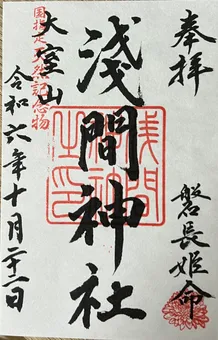 奉拝
磐長姫命
浅間神社
浅間神社之印
国指定天然記念物
大室山
令和六年十月二十一日